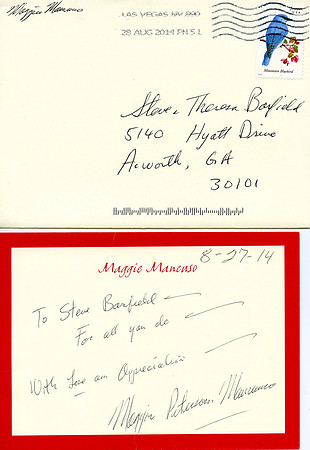 Maggie Mancuso
LAS VEGAS NV 890
28 AUG 2014 PM 5 L
Mountain Bluebird
Steve & Theresa Barfield
5140 Hyatt Drive
Acworth, GA
30101
Maggie Mancuso
8-27-14
To Steve Barfield —
For all you do —
With Love and Appreciation —
Maggie Peterson Mancuso